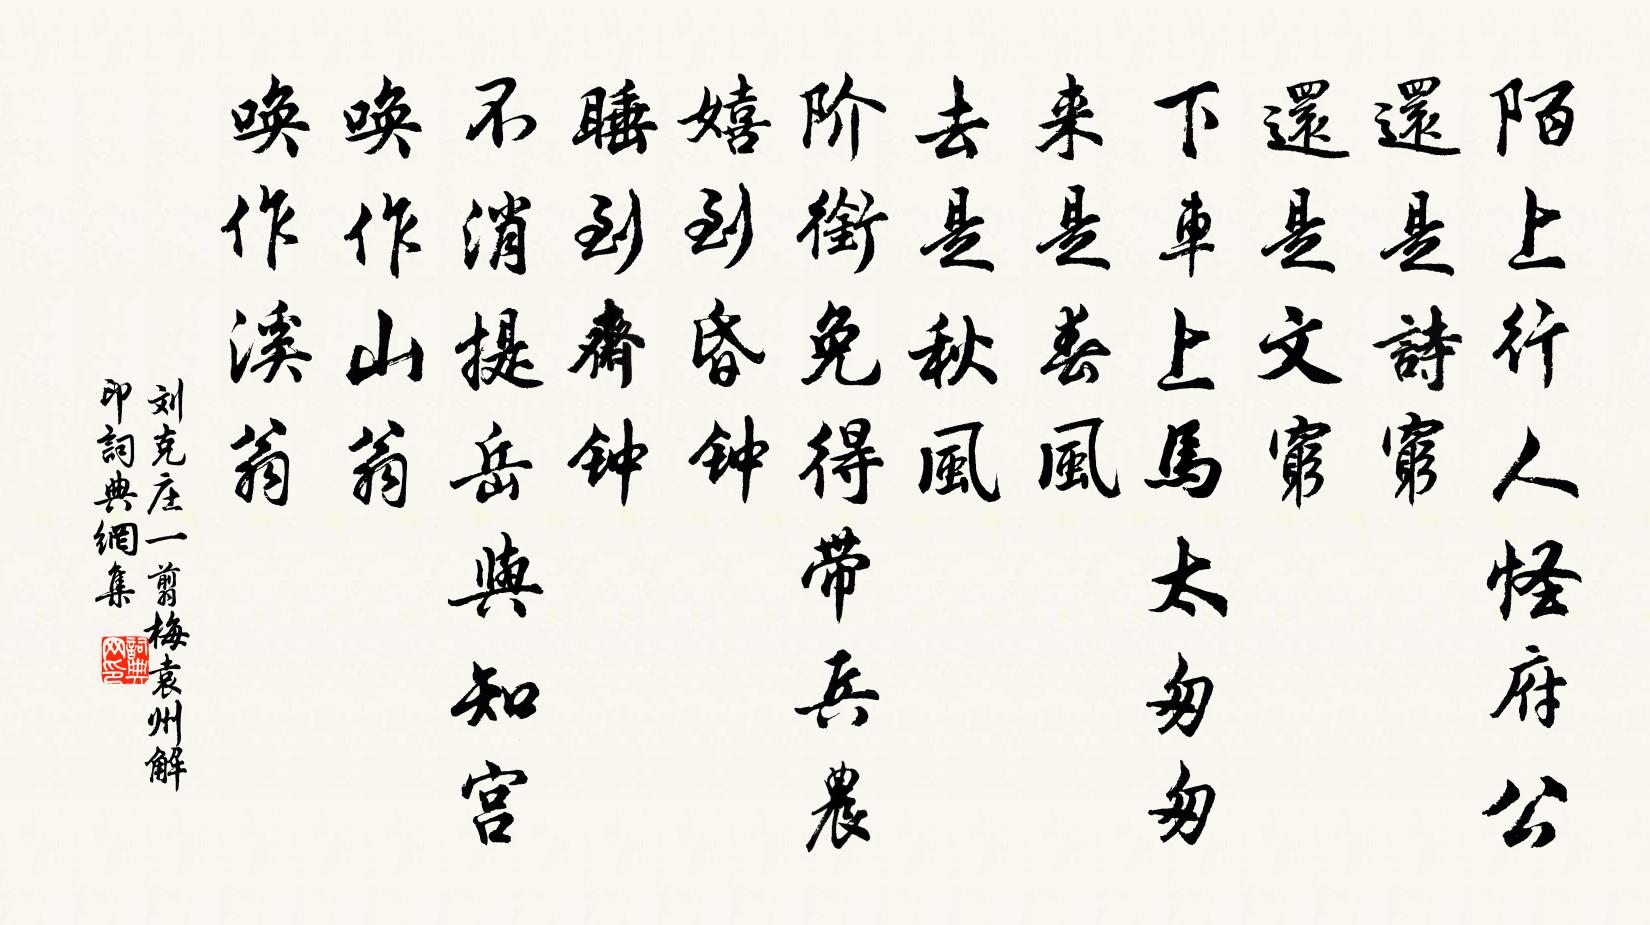 陌上行人怪府公
還是詩窮
還是文窮
下車上馬太匆匆
来是春風
去是秋風
阶銜免得带兵農
嬉到昏钟
睡到齋钟
不消提岳與知宫
唤作山翁
唤作溪翁
刘克庄一剪梅袁州解
印詞典網集
詞典网印